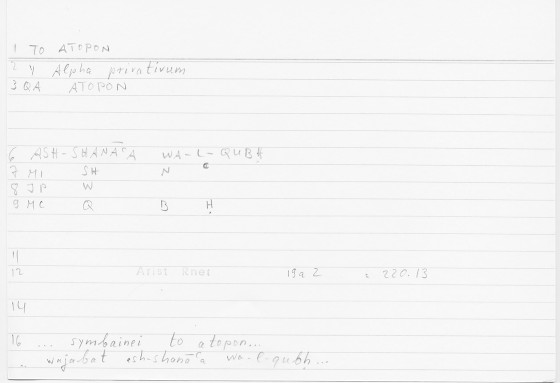 1 TO ATOPON
2 Y Alpha privativum
3 QA ATOPON
6 ASH-SHANĀʿA WA-L-QUBḤ
7 MI SH N ʿ
8 JP W
9 MC Q B Ḥ
11
12 Arist Rhet 19a 2 = 220.13
14
16 ... symbainei to atopon...
.. wajabat ash-shanāʿa wa-l-qubḥ...